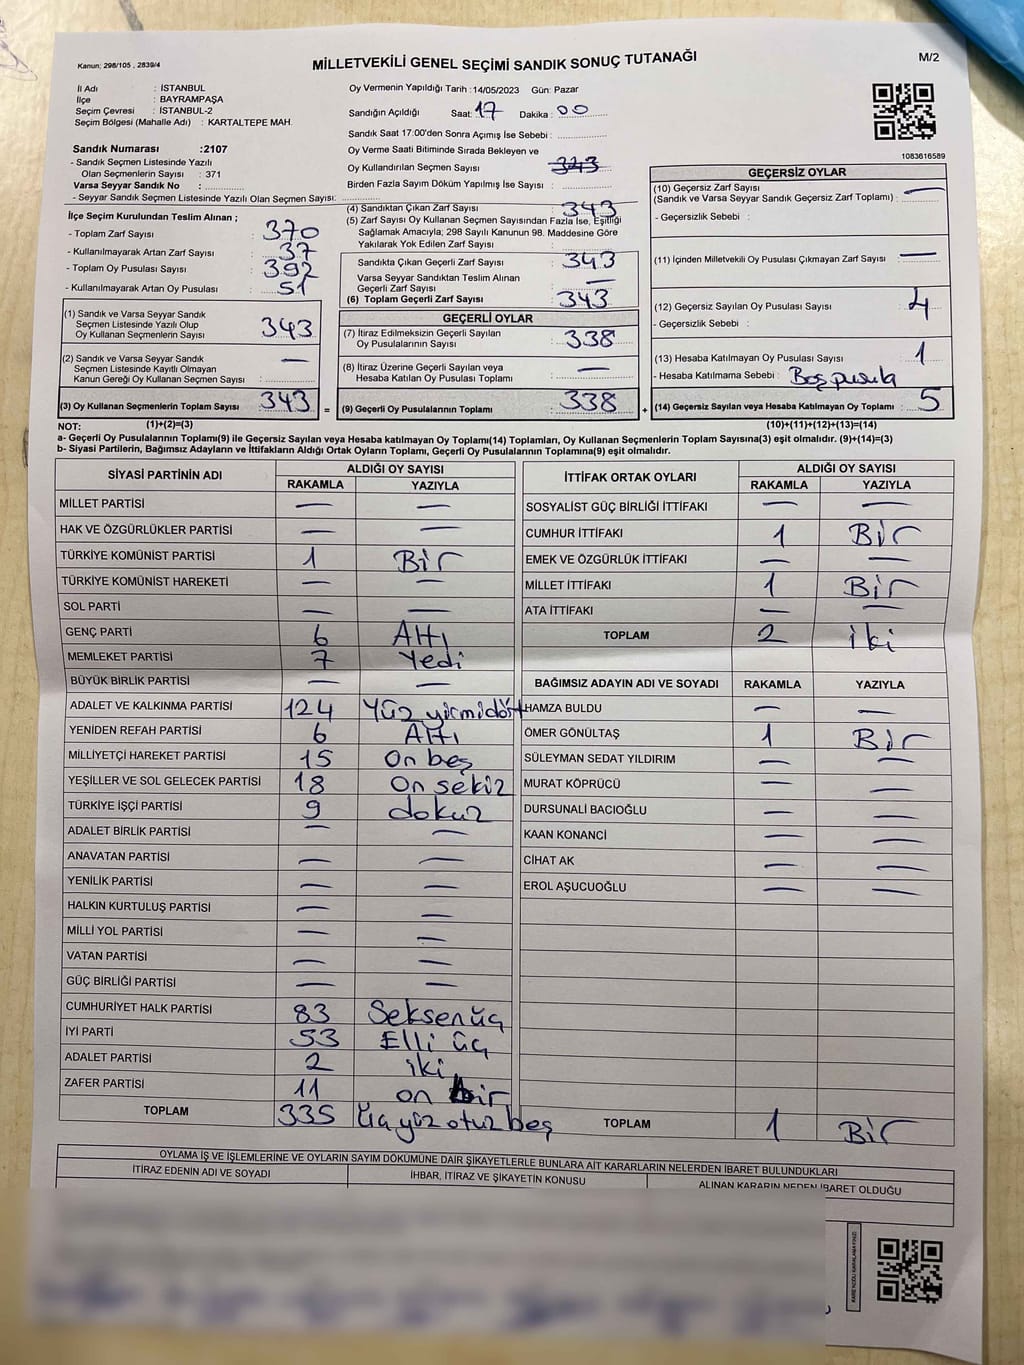 Kanun; 298/105 , 2839/4
MİLLETVEKİLİ GENEL SEÇİMİ SANDIK SONUÇ TUTANAĞI
M/2
İl Adı : İSTANBUL
İlçe : BAYRAMPAŞA
Seçim Çevresi : İSTANBUL-2
Seçim Bölgesi (Mahalle Adı) : KARTALTEPE MAH.
Sandık Numarası :2107
- Sandık Seçmen Listesinde Yazılı
Olan Seçmenlerin Sayısı : 371
Varsa Seyyar Sandık No :
- Seyyar Sandık Listesinde Yazılı Olan Seçmen Sayısı:
Oy Vermenin Yapıldığı Tarih :14/05/2023 Gün: Pazar
Sandığın Açıldığı Saat: 17 Dakika : 00
Sandık Saat 17:00'den Sonra Açımış İse Sebebi :
Oy Verme Saati Bitiminde Sırada Bekleyen ve
Oy Kullandırılan Seçmen Sayısı : 343
Birden Fazla Sayım Döküm Yapılmış İse Sayısı :
1083616589
İlçe Seçim Kurulundan Teslim Alınan ;
- Toplam Zarf Sayısı : 370
- Kullanılmayarak Artan Zarf Sayısı : 37
- Toplam Oy Pusulası Sayısı : 392
- Kullanılmayarak Artan Oy Pusulası : 51
(1) Sandık ve Varsa Seyyar Sandık
Seçmen Listesinde Yazılı Olup
Oy Kullanan Seçmenlerin Sayısı : 343
(2) Sandık ve Varsa Seyyar Sandık
Seçmen Listesinde Kayıtlı Olmayan
Kanun Gereği Oy Kullanan Seçmen Sayısı : —
(3) Oy Kullanan Seçmenlerin Toplam Sayısı : 343
(4) Sandıktan Çıkan Zarf Sayısı : 343
(5) Zarf Sayısı Oy Kullanan Seçmen Sayısından Fazla İse, Eşitliği
Sağlamak Amacıyla; 298 Sayılı Kanunun 98. Maddesine Göre
Yakılarak Yok Edilen Zarf Sayısı :
Sandıkta Çıkan Geçerli Zarf Sayısı : 343
Varsa Seyyar Sandıktan Teslim Alınan
Geçerli Zarf Sayısı : —
(6) Toplam Geçerli Zarf Sayısı : 343
GEÇERLİ OYLAR
(7) İtiraz Edilmeksizin Geçerli Sayılan
Oy Pusulalarının Sayısı : 338
(8) İtiraz Üzerine Geçerli Sayılan veya
Hesaba Katılan Oy Pusulası Toplamı : —
= (9) Geçerli Oy Pusulalarının Toplamı : 338
GEÇERSİZ OYLAR
(10) Geçersiz Zarf Sayısı
(Sandık ve Varsa Seyyar Sandık Geçersiz Zarf Toplamı) : —
- Geçersizlik Sebebi :
(11) İçinden Milletvekili Oy Pusulası Çıkmayan Zarf Sayısı : —
(12) Geçersiz Sayılan Oy Pusulası Sayısı : 4
- Geçersizlik Sebebi :
(13) Hesaba Katılmayan Oy Pusulası Sayısı : 1
- Hesaba Katılmama Sebebi : Boş pusula
+ (14) Geçersiz Sayılan veya Hesaba Katılmayan Oy Toplamı : 5
NOT: (1)+(2)=(3) (10)+(11)+(12)+(13)=(14)
a- Geçerli Oy Pusulalarının Toplamı(9) ile Geçersiz Sayılan veya Hesaba katılmayan Oy Toplamı(14) Toplamları, Oy Kullanan Seçmenlerin Toplam Sayısına(3) eşit olmalıdır. (9)+(14)=(3)
b- Siyasi Partilerin, Bağımsız Adayların ve İttifakların Aldığı Ortak Oyların Toplamı, Geçerli Oy Pusulalarının Toplamına(9) eşit olmalıdır.
SİYASİ PARTİNİN ADI ALDIĞI OY SAYISI
RAKAMLA YAZIYLA
MİLLET PARTİSİ — —
HAK VE ÖZGÜRLÜKLER PARTİSİ — —
TÜRKİYE KOMÜNİST PARTİSİ 1 Bir
TÜRKİYE KOMÜNİST HAREKETİ — —
SOL PARTİ — —
GENÇ PARTİ 6 Altı
MEMLEKET PARTİSİ 7 Yedi
BÜYÜK BİRLİK PARTİSİ — —
ADALET VE KALKINMA PARTİSİ 124 Yüz yirmidört
YENİDEN REFAH PARTİSİ 6 Altı
MİLLİYETÇİ HAREKET PARTİSİ 15 On beş
YEŞİLLER VE SOL GELECEK PARTİSİ 18 On sekiz
TÜRKİYE İŞÇİ PARTİSİ 9 dokuz
ADALET BİRLİK PARTİSİ — —
ANAVATAN PARTİSİ — —
YENİLİK PARTİSİ — —
HALKIN KURTULUŞ PARTİSİ — —
MİLLİ YOL PARTİSİ — —
VATAN PARTİSİ — —
GÜÇ BİRLİĞİ PARTİSİ — —
CUMHURİYET HALK PARTİSİ 83 Seksen üç
İYİ PARTİ 53 Elli üç
ADALET PARTİSİ 2 iki
ZAFER PARTİSİ 11 on bir
TOPLAM 335 üçyüz otuz beş
İTTİFAK ORTAK OYLARI ALDIĞI OY SAYISI
RAKAMLA YAZIYLA
SOSYALİST GÜÇ BİRLİĞİ İTTİFAKI — —
CUMHUR İTTİFAKI 1 Bir
EMEK VE ÖZGÜRLÜK İTTİFAKI — —
MİLLET İTTİFAKI 1 Bir
ATA İTTİFAKI — —
TOPLAM 2 iki
BAĞIMSIZ ADAYIN ADI VE SOYADI RAKAMLA YAZIYLA
HAMZA BULDU — —
ÖMER GÖNÜLTAŞ 1 Bir
SÜLEYMAN SEDAT YILDIRIM — —
MURAT KÖPRÜCÜ — —
DURSUNALİ BACIOĞLU — —
KAAN KONANCİ — —
CİHAT AK — —
EROL AŞUCUOĞLU — —
TOPLAM 1 Bir
OYLAMA İŞ VE İŞLEMLERİNE VE OYLARIN SAYIM DÖKÜMÜNE DAİR ŞİKAYETLERLE BUNLARA AİT KARARLARIN NELERDEN İBARET BULUNDUKLARI
İTİRAZ EDENİN ADI VE SOYADI İHBAR, İTİRAZ VE ŞİKAYETİN KONUSU ALINAN KARARIN NEDEN İBARET OLDUĞU